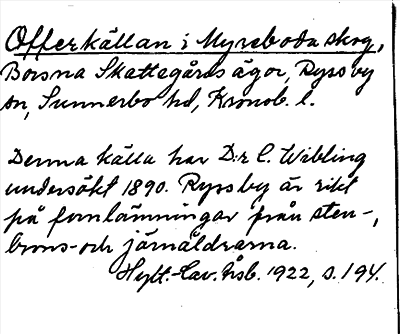 Offerkällan i Myreboda skog,
Borsna Skattegårds ägor, Ryssby
sn, Sunnerbo hd, Kronob. l.
Denna källa har D:r C. Wibling
undersökt 1890. Ryssby är rikt
på fornlämningar från sten-,
brons- och järnåldrarna.
Hylt.-Cav. årsb. 1922, s. 194.